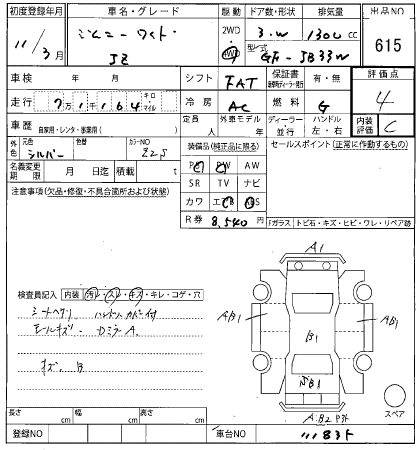 初度登録年月 車名・グレード 駆動 ドア数・形状 排気量 出品NO
11/3月 ジムニーワイド 2WD 4WD 3.W 1300cc 615
JZ 型式 GF-JB33W
車検 年 月 シフト FAT 保証書 有・無 評価点
走行 7万1千164 キロ マイル 冷房 AC 燃料 G 4
車歴 自家用・レンタ・事業用( ) 定員 人 外車モデル 年 ディーラー・並行 ハンドル 左・右 内装評価 C
外色 元色 シルバー 色替 カラーNO Z2S 装備品(純正品に限る) セールスポイント(正常に作動するもの)
名義変更期限 月 日迄 積載 t PS PW AW
注意事項(欠品・修復・不具合箇所および状態) SR TV ナビ
カワ エアB ABS
R券 8,540円 Gガラス トビ石・キズ・ヒビ・ワレ・リペア跡
A1
検査員記入 内装 汚レ・スレ・キズ・キレ・コゲ・穴
シートヘタリ ハンドルカバー付
モールキズ
キズ B
AB1 B1 AB1
スペア
長さ cm 幅 cm 高さ cm
登録NO 車台NO